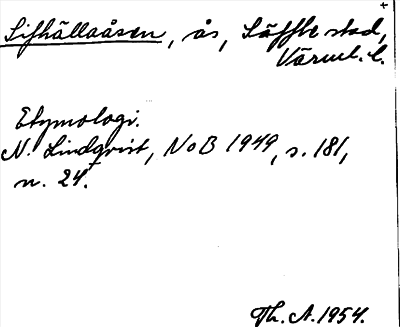 +
Sifhällaåsen, ås, Säffle stad,
Värml. l.
Etymologi.
N. Lindqvist, NoB 1949, s. 181,
n. 24.
Th. A. 1954.